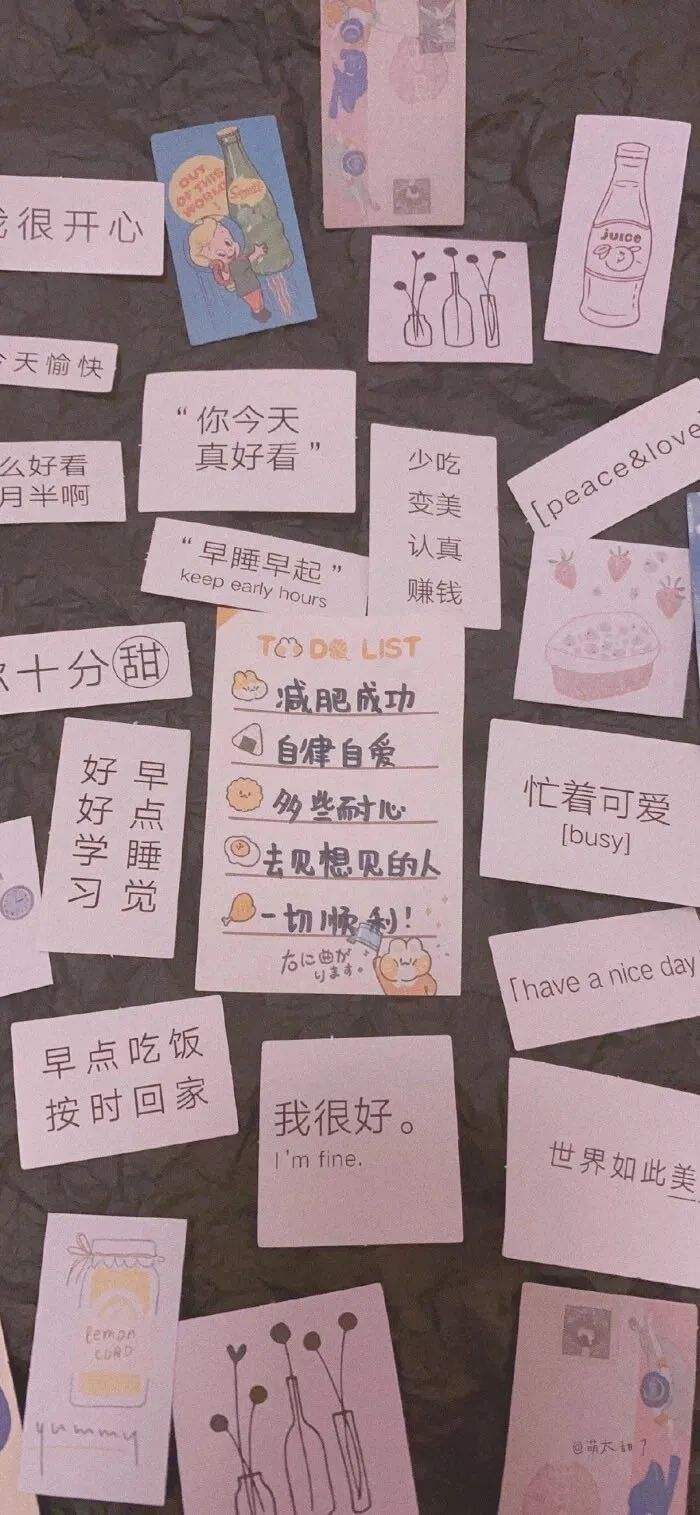 OUT
OF THIS
WORLD
!
juice
我很开心
今天愉快
“你今天
真好看”
么好看
月半啊
少吃
变美
认真
赚钱
[peace&love
“早睡早起”
keep early hours
TO DO LIST
减肥成功
自律自爱
多些耐心
去见想见的人
一切顺利!
右に曲が
ります。
你十分甜
早点睡觉
好好学习
忙着可爱
[busy]
「have a nice day
早点吃饭
按时回家
我很好。
I'm fine.
世界如此美
lemon
CURD
yummy